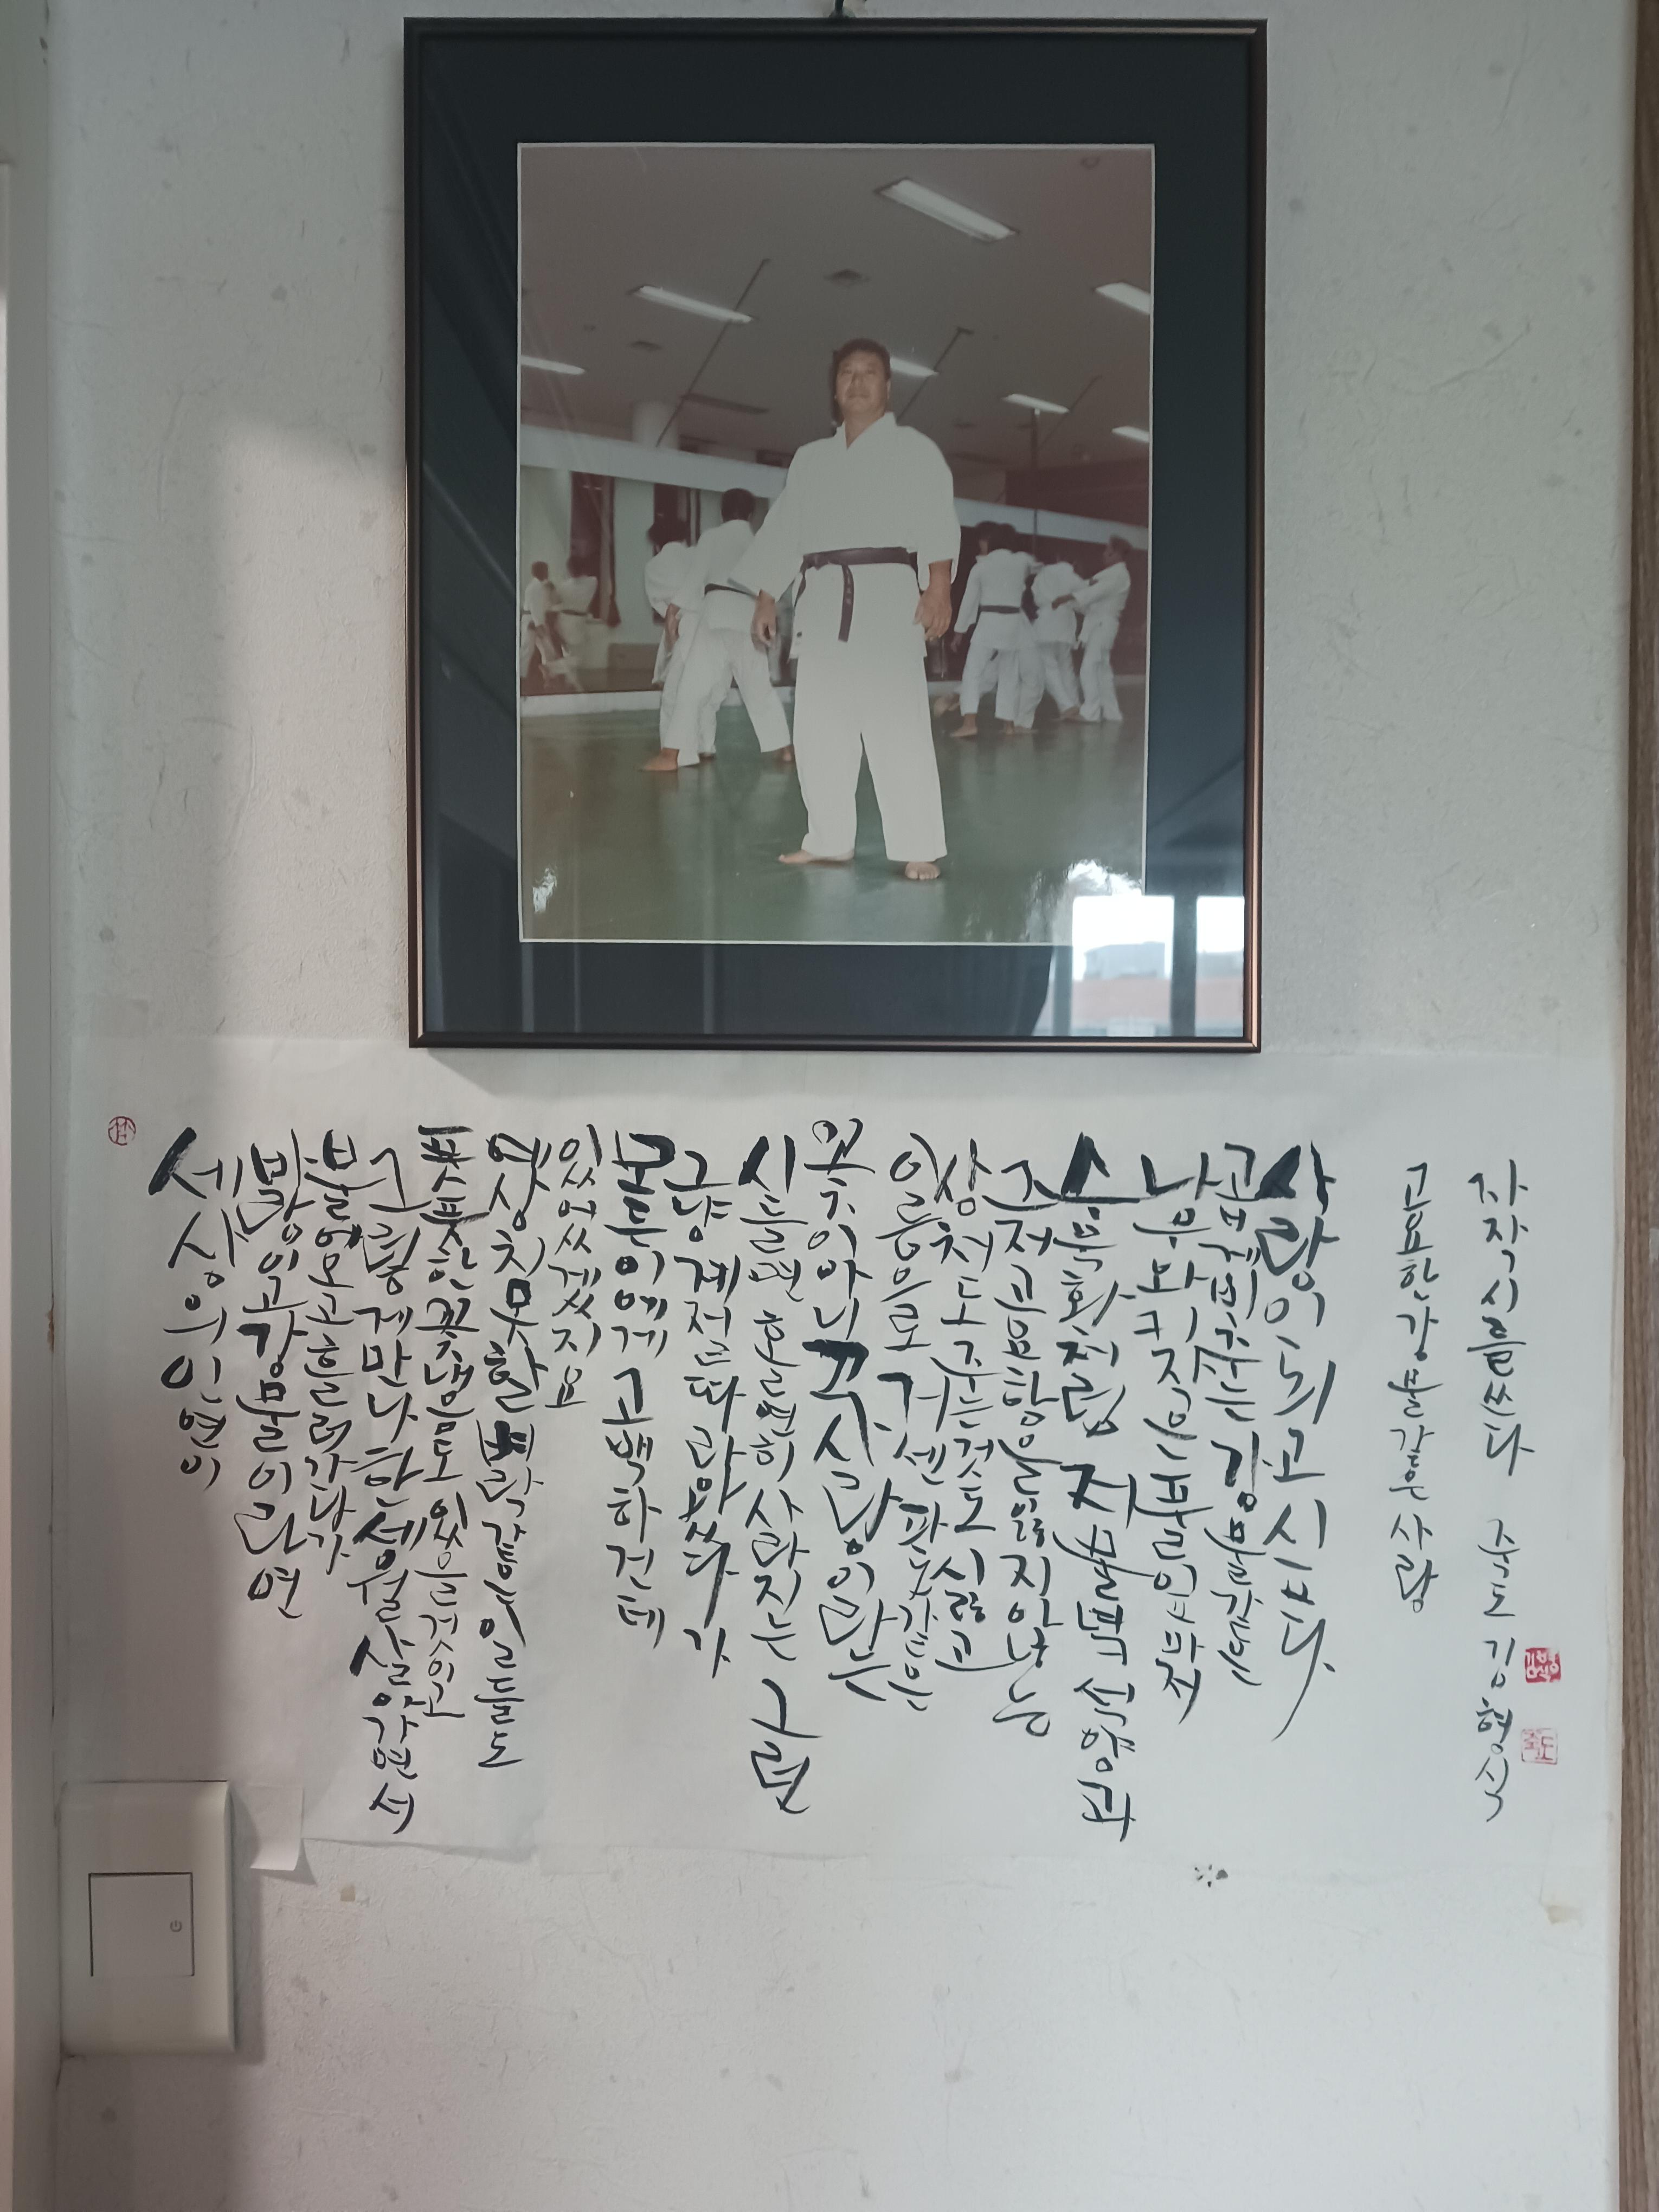 세상의 인연이
바람이고 강물이라면
불어오고 흘러가다가
그렇게 만나 한세월 살아가면서
풋풋한 꽃냄음도 있을것이고
예상치 못할 벼락같은 일들도
있었겠지요
모든이에게 고백하건데
그냥 계절따라 왔다가
시들면 홀연히 사라지는 그런
아니 사랑이라는
이름으로 거센 파도같은
상처도 주는것도 싫고
그저 고요함을 잃지 않는
수묵화처럼 저물녘 석양과
나무와 키작은 풀잎마저
곱게 비춰주는 강물같은
사랑이 되고 싶다.
고요한 강물같은 사랑
자작시를 쓰다 죽도 김형식